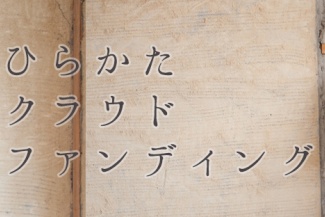 ひらかた
クラウド
ファンディング